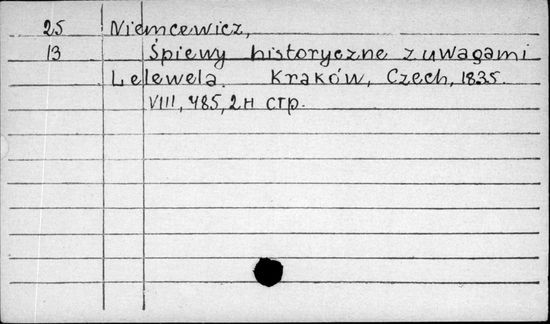 25 Niemcewicz,
13 Śpiewy historyczne z uwagami
Lelewela. Kraków, Czech, 1835.
VIII, 485, 2н стр.